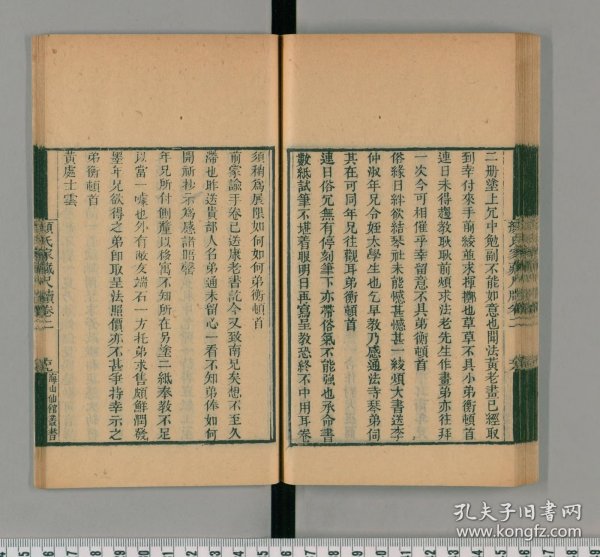 二冊塗上冗中勉副不能如意也聞法黃老畫已經取
到幸付來手前綾並求揮擲也草草不具小弟衡頓首
連日未得趨教耿耿前煩求法老先生作畫弟亦往拜
一次今可相催乎幸留意不具弟衡頓首
俗緣日絆欲結琴社未能憾甚憾甚一綾煩大書送李
仲淑年兄令姪太學生也乞早教乃感通法寺琴弟伺
其在可同年兄往觀耳弟衡頓首
連日俗冗無有停刻筆下亦帶俗氣不能強也承命書
數紙試筆不堪着眼明日再寫呈教恐終不中用耳卷
顏氏家藏尺牘卷二
須稍為展限如何如何弟衡頓首
前家諭手卷已送康老書訖今又致南兄矣想不至久
滯也昨送貴部人名弟通未留心一看不知弟俸如何
開祈抄示為感諸晤罄
年兄所付側釐以移寓不知所在另塗二紙奉教不足
以當一噱也外有敝友端石一方托弟求售頗鮮潤發
墨年兄欲得之弟即取呈法照價亦不甚爭持幸示之
弟衡頓首
黃處士雲
顏氏家藏尺牘卷二
海山仙館叢書
孔夫子旧书网
www.kongfz.com